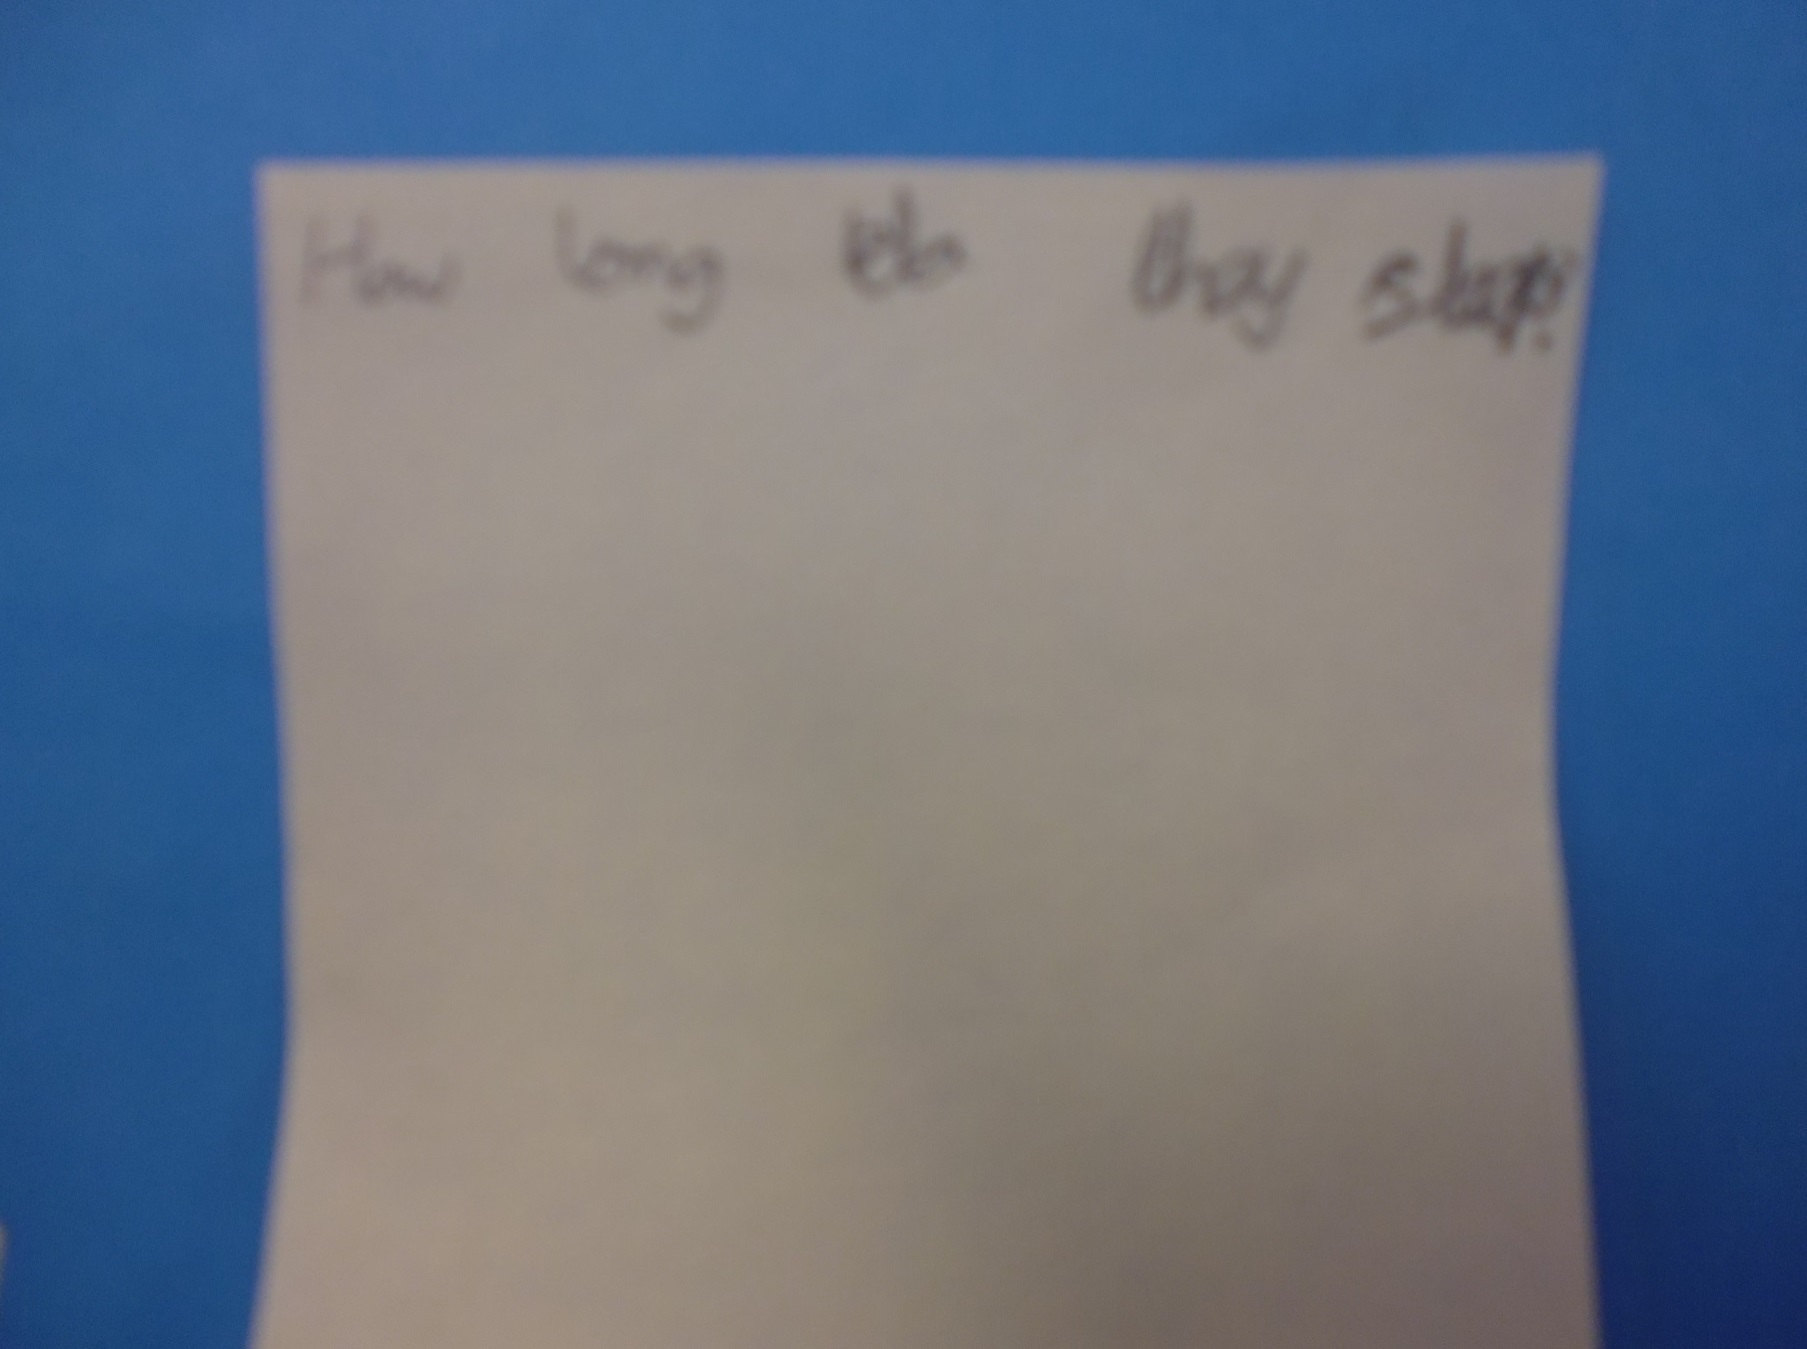 How long do they sleep?